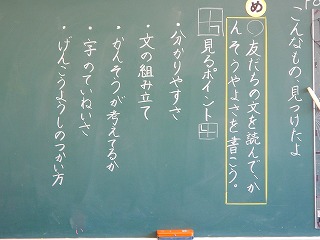 こんなもの、見つけたよ
め
○友だちの文を読んで、か
んそうやよさを書こう。
見るポイント
・分かりやすさ
・文の組み立て
・かんそうが考えてるか
・字のていねいさ
・げんこうようしのつかい方